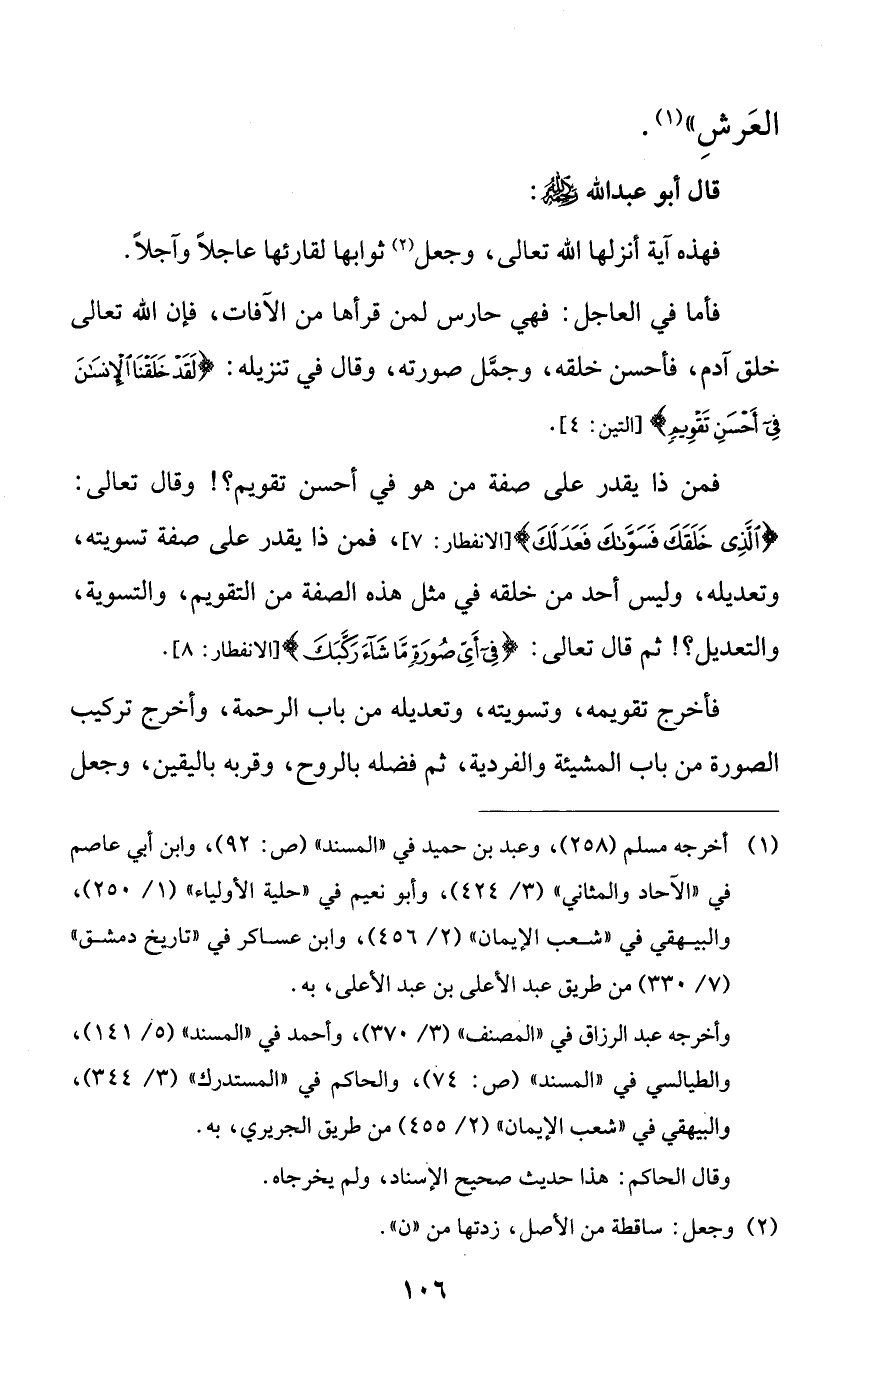 العَرشِ»(١).
قال أبو عبدالله رحمه الله:
فهذه آية أنزلها الله تعالى، وجعل(٢) ثوابها لقارئها عاجلاً وآجلاً.
فأما في العاجل: فهي حارس لمن قرأها من الآفات، فإن الله تعالى
خلق آدم، فأحسن خلقه، وجمَّل صورته، وقال في تنزيله: ﴿لَقَدْ خَلَقْنَا ٱلْإِنسَٰنَ
فِىٓ أَحْسَنِ تَقْوِيمٍ﴾ [التين: ٤].
فمن ذا يقدر على صفة من هو في أحسن تقويم؟! وقال تعالى:
﴿ٱلَّذِى خَلَقَكَ فَسَوَّىٰكَ فَعَدَلَكَ﴾[الانفطار: ٧]، فمن ذا يقدر على صفة تسويته،
وتعديله، وليس أحد من خلقه في مثل هذه الصفة من التقويم، والتسوية،
والتعديل؟! ثم قال تعالى: ﴿فِىٓ أَىِّ صُورَةٍ مَّا شَآءَ رَكَّبَكَ﴾[الانفطار: ٨].
فأخرج تقويمه، وتسويته، وتعديله من باب الرحمة، وأخرج تركيب
الصورة من باب المشيئة والفردية، ثم فضله بالروح، وقربه باليقين، وجعل
(١) أخرجه مسلم (٢٥٨)، وعبد بن حميد في «المسند» (ص: ٩٢)، وابن أبي عاصم
في «الآحاد والمثاني» (٣/ ٤٢٤)، وأبو نعيم في «حلية الأولياء» (١/ ٢٥٠)،
والبيهقي في «شعب الإيمان» (٢/ ٤٥٦)، وابن عساكر في «تاريخ دمشق»
(٧/ ٣٣٠) من طريق عبد الأعلى بن عبد الأعلى، به.
وأخرجه عبد الرزاق في «المصنف» (٣/ ٣٧٠)، وأحمد في «المسند» (٥/ ١٤١)،
والطيالسي في «المسند» (ص: ٧٤)، والحاكم في «المستدرك» (٣/ ٣٤٤)،
والبيهقي في «شعب الإيمان» (٢/ ٤٥٥) من طريق الجريري، به.
وقال الحاكم: هذا حديث صحيح الإسناد، ولم يخرجاه.
(٢) وجعل: ساقطة من الأصل، زدتها من «ن».
١٠٦